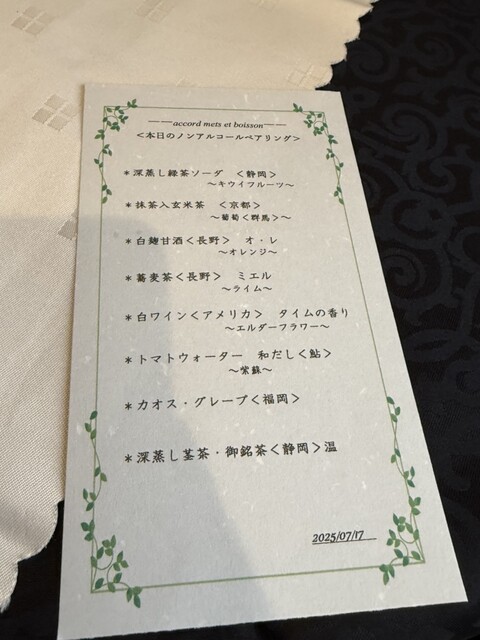 ——accord mets et boisson——
＜本日のノンアルコールペアリング＞
＊深蒸し緑茶ソーダ ＜静岡＞
～キウイフルーツ～
＊抹茶入玄米茶 ＜京都＞
～葡萄＜群馬＞～
＊白麹甘酒＜長野＞ オ・レ
～オレンジ～
＊蕎麦茶＜長野＞ ミエル
～ライム～
＊白ワイン＜アメリカ＞ タイムの香り
～エルダーフラワー～
＊トマトウォーター 和だし＜鮎＞
～紫蘇～
＊カオス・グレープ＜福岡＞
＊深蒸し茎茶・御銘茶＜静岡＞温
2025/07/17